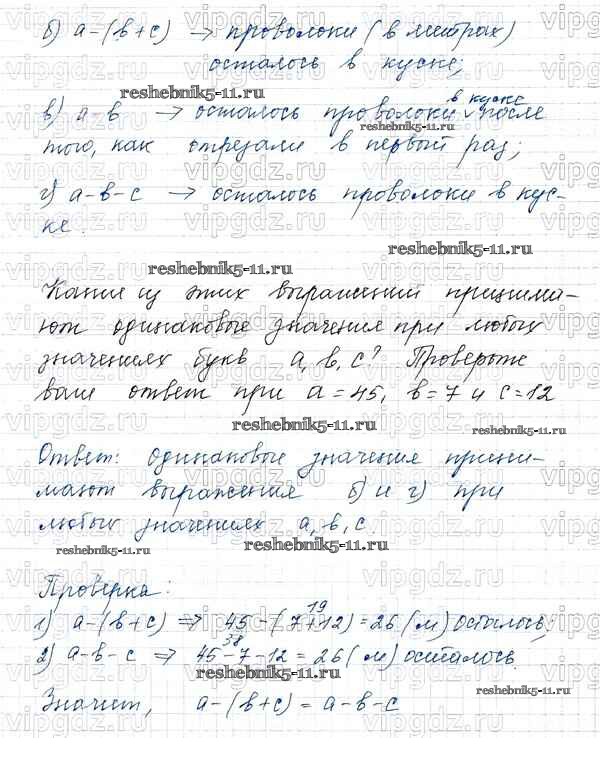 б) a-(в+c) → проволоки (в метрах)
осталось в куске;
reshebnik5-11.ru
в) a-в → осталось проволоки в куске после
reshebnik5-11.ru
того, как отрезали в первый раз;
г) a-в-c → осталось проволоки в кус-
ке.
reshebnik5-11.ru
reshebnik5-11.ru
Какие из этих выражений принима-
ют одинаковые значения при любых
значениях букв a, в, c? Проверьте
ваш ответ при a=45, в=7 и c=12
reshebnik5-11.ru
reshebnik5-11.ru
Ответ: одинаковые значения прини-
мают выражения б) и г) при
любых значениях a, в, c.
reshebnik5-11.ru
reshebnik5-11.ru
Проверка:
19
1) a-(в+c) ⇒ 45-(7+12)=26(м) осталось;
38
2) a-в-c ⇒ 45-7-12=26(м) осталось.
reshebnik5-11.ru
reshebnik5-11.ru
Значит, a-(в+c)=a-в-c